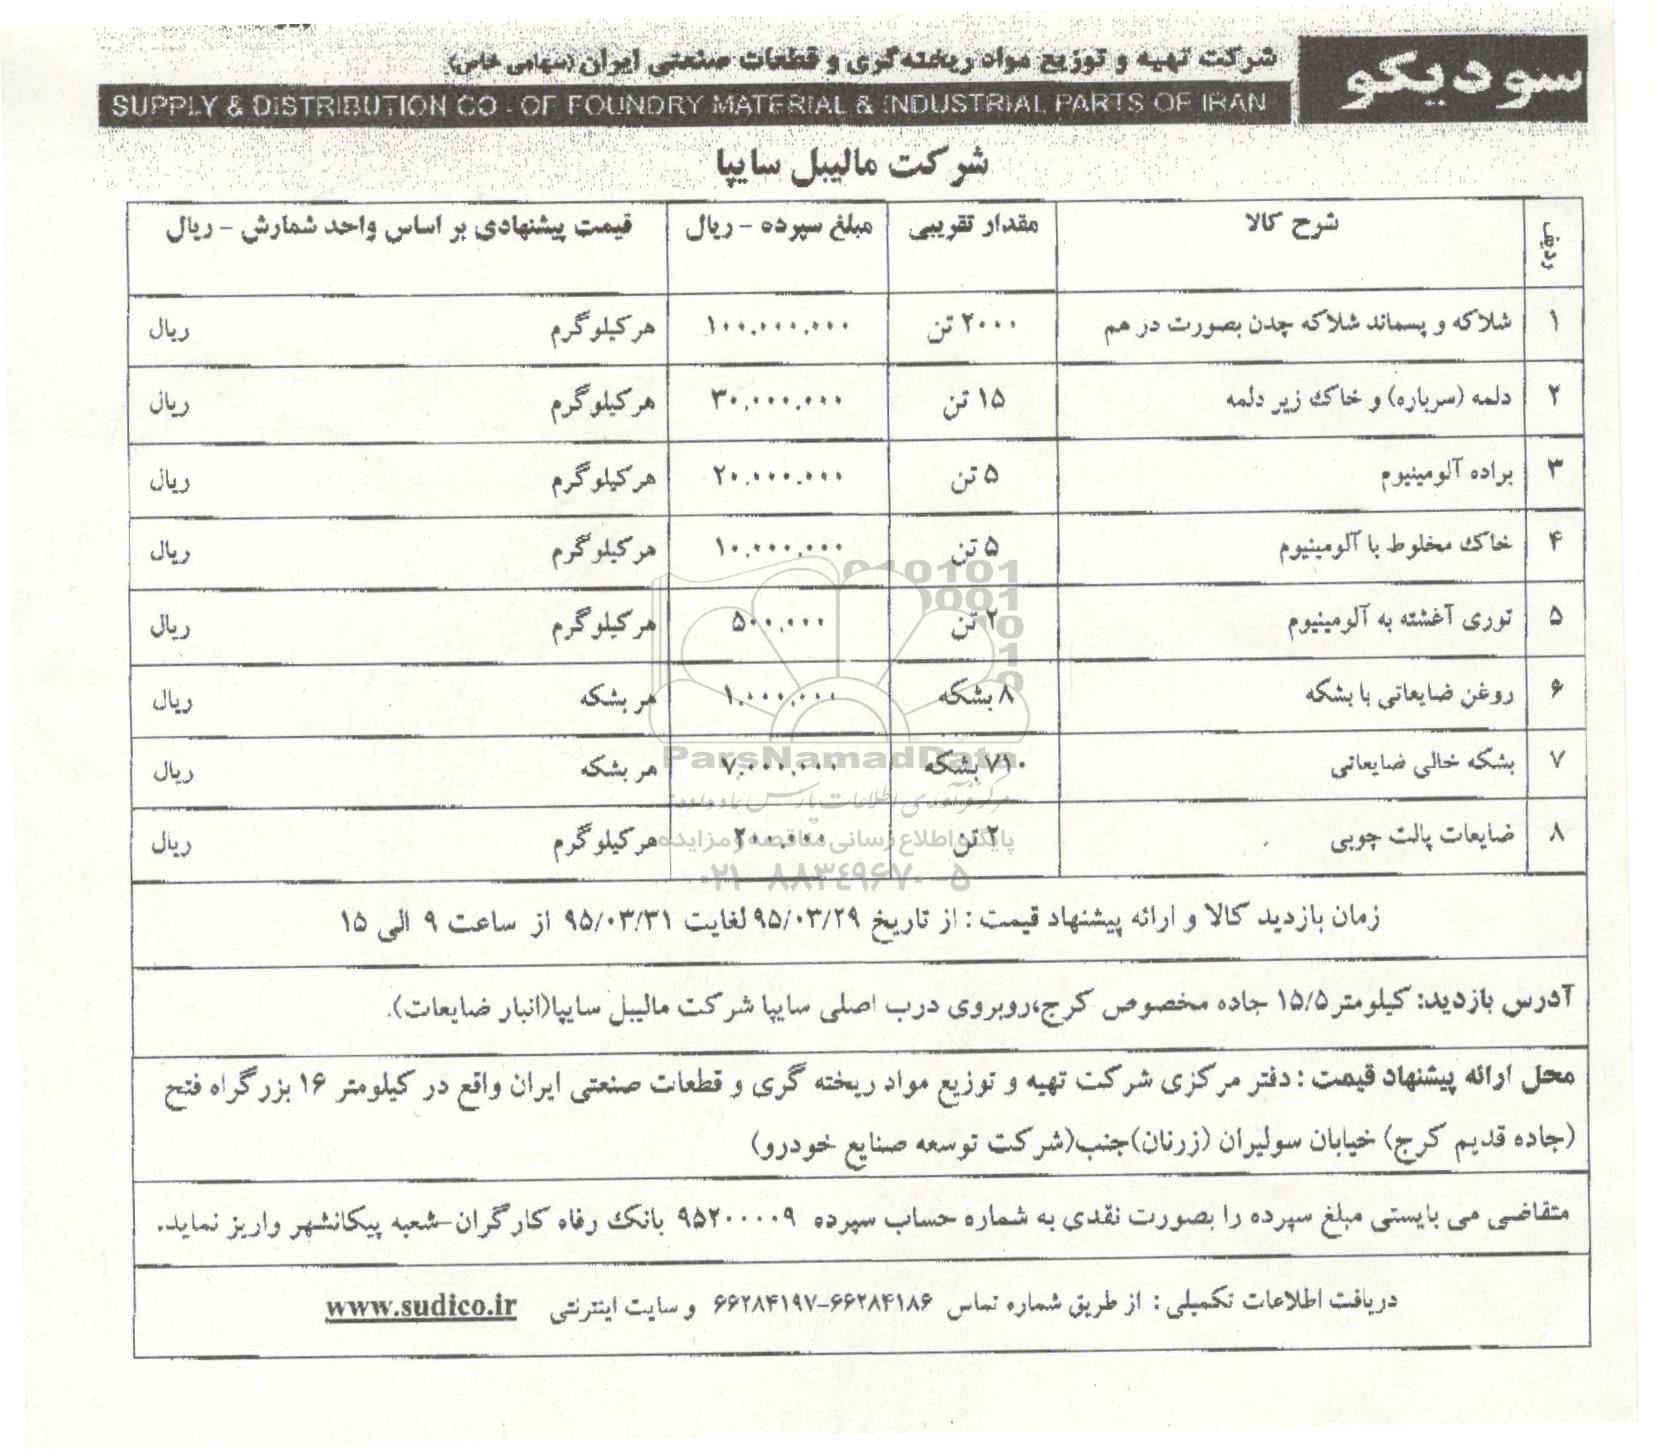 سودیکو
شرکت تهیه و توزیع مواد ریخته‌گری و قطعات صنعتی ایران (سهامی خاص)
SUPPLY & DISTRIBUTION CO . OF FOUNDRY MATERIAL & INDUSTRIAL PARTS OF IRAN
شرکت مالیبل سایپا
ردیف | شرح کالا | مقدار تقریبی | مبلغ سپرده - ریال | قیمت پیشنهادی بر اساس واحد شمارش - ریال
۱ | شلاکه و پسماند شلاکه چدن بصورت در هم | ۲۰۰۰ تن | ۱۰۰.۰۰۰.۰۰۰ | هرکیلوگرم ریال
۲ | دلمه (سرباره) و خاک زیر دلمه | ۱۵ تن | ۳۰.۰۰۰.۰۰۰ | هرکیلوگرم ریال
۳ | براده آلومینیوم | ۵ تن | ۲۰.۰۰۰.۰۰۰ | هرکیلوگرم ریال
۴ | خاک مخلوط با آلومینیوم | ۵ تن | ۱۰.۰۰۰.۰۰۰ | هرکیلوگرم ریال
۵ | توری آغشته به آلومینیوم | ۲ تن | ۵۰۰.۰۰۰ | هرکیلوگرم ریال
۶ | روغن ضایعاتی با بشکه | ۸ بشکه | ۱.۰۰۰.۰۰۰ | هر بشکه ریال
۷ | بشکه خالی ضایعاتی | ۷۱۰ بشکه | ۷.۰۰۰.۰۰۰ | هر بشکه ریال
۸ | ضایعات پالت چوبی | ۲ تن | ۲۰۰.۰۰۰ | هرکیلوگرم ریال
ParsNamadData
پایگاه اطلاع رسانی مناقصه و مزایده
۰۲۱-۸۸۳۴۹۶۷۰-۵
زمان بازدید کالا و ارائه پیشنهاد قیمت : از تاریخ ۹۵/۰۳/۲۹ لغایت ۹۵/۰۳/۳۱ از ساعت ۹ الی ۱۵
آدرس بازدید: کیلومتر ۱۵/۵ جاده مخصوص کرج،روبروی درب اصلی سایپا شرکت مالیبل سایپا(انبار ضایعات).
محل ارائه پیشنهاد قیمت : دفتر مرکزی شرکت تهیه و توزیع مواد ریخته گری و قطعات صنعتی ایران واقع در کیلومتر ۱۶ بزرگراه فتح
(جاده قدیم کرج) خیابان سولیران (زرنان)جنب(شرکت توسعه صنایع خودرو)
متقاضی می بایستی مبلغ سپرده را بصورت نقدی به شماره حساب سپرده ۹۵۲۰۰۰۰۹ بانک رفاه کارگران-شعبه پیکانشهر واریز نماید.
دریافت اطلاعات تکمیلی : از طریق شماره تماس ۶۶۲۸۴۱۸۶-۶۶۲۸۴۱۹۷ و سایت اینترنتی www.sudico.ir